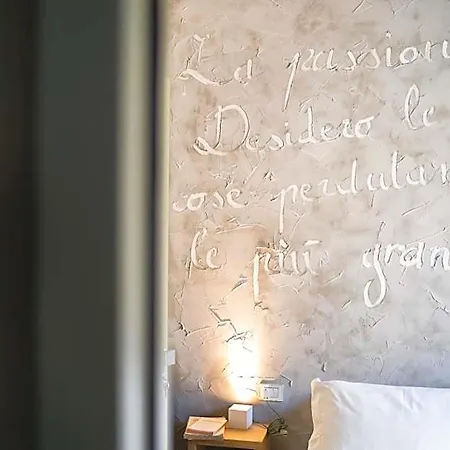 La passion
Desidero le
cose perdutam
le più gran